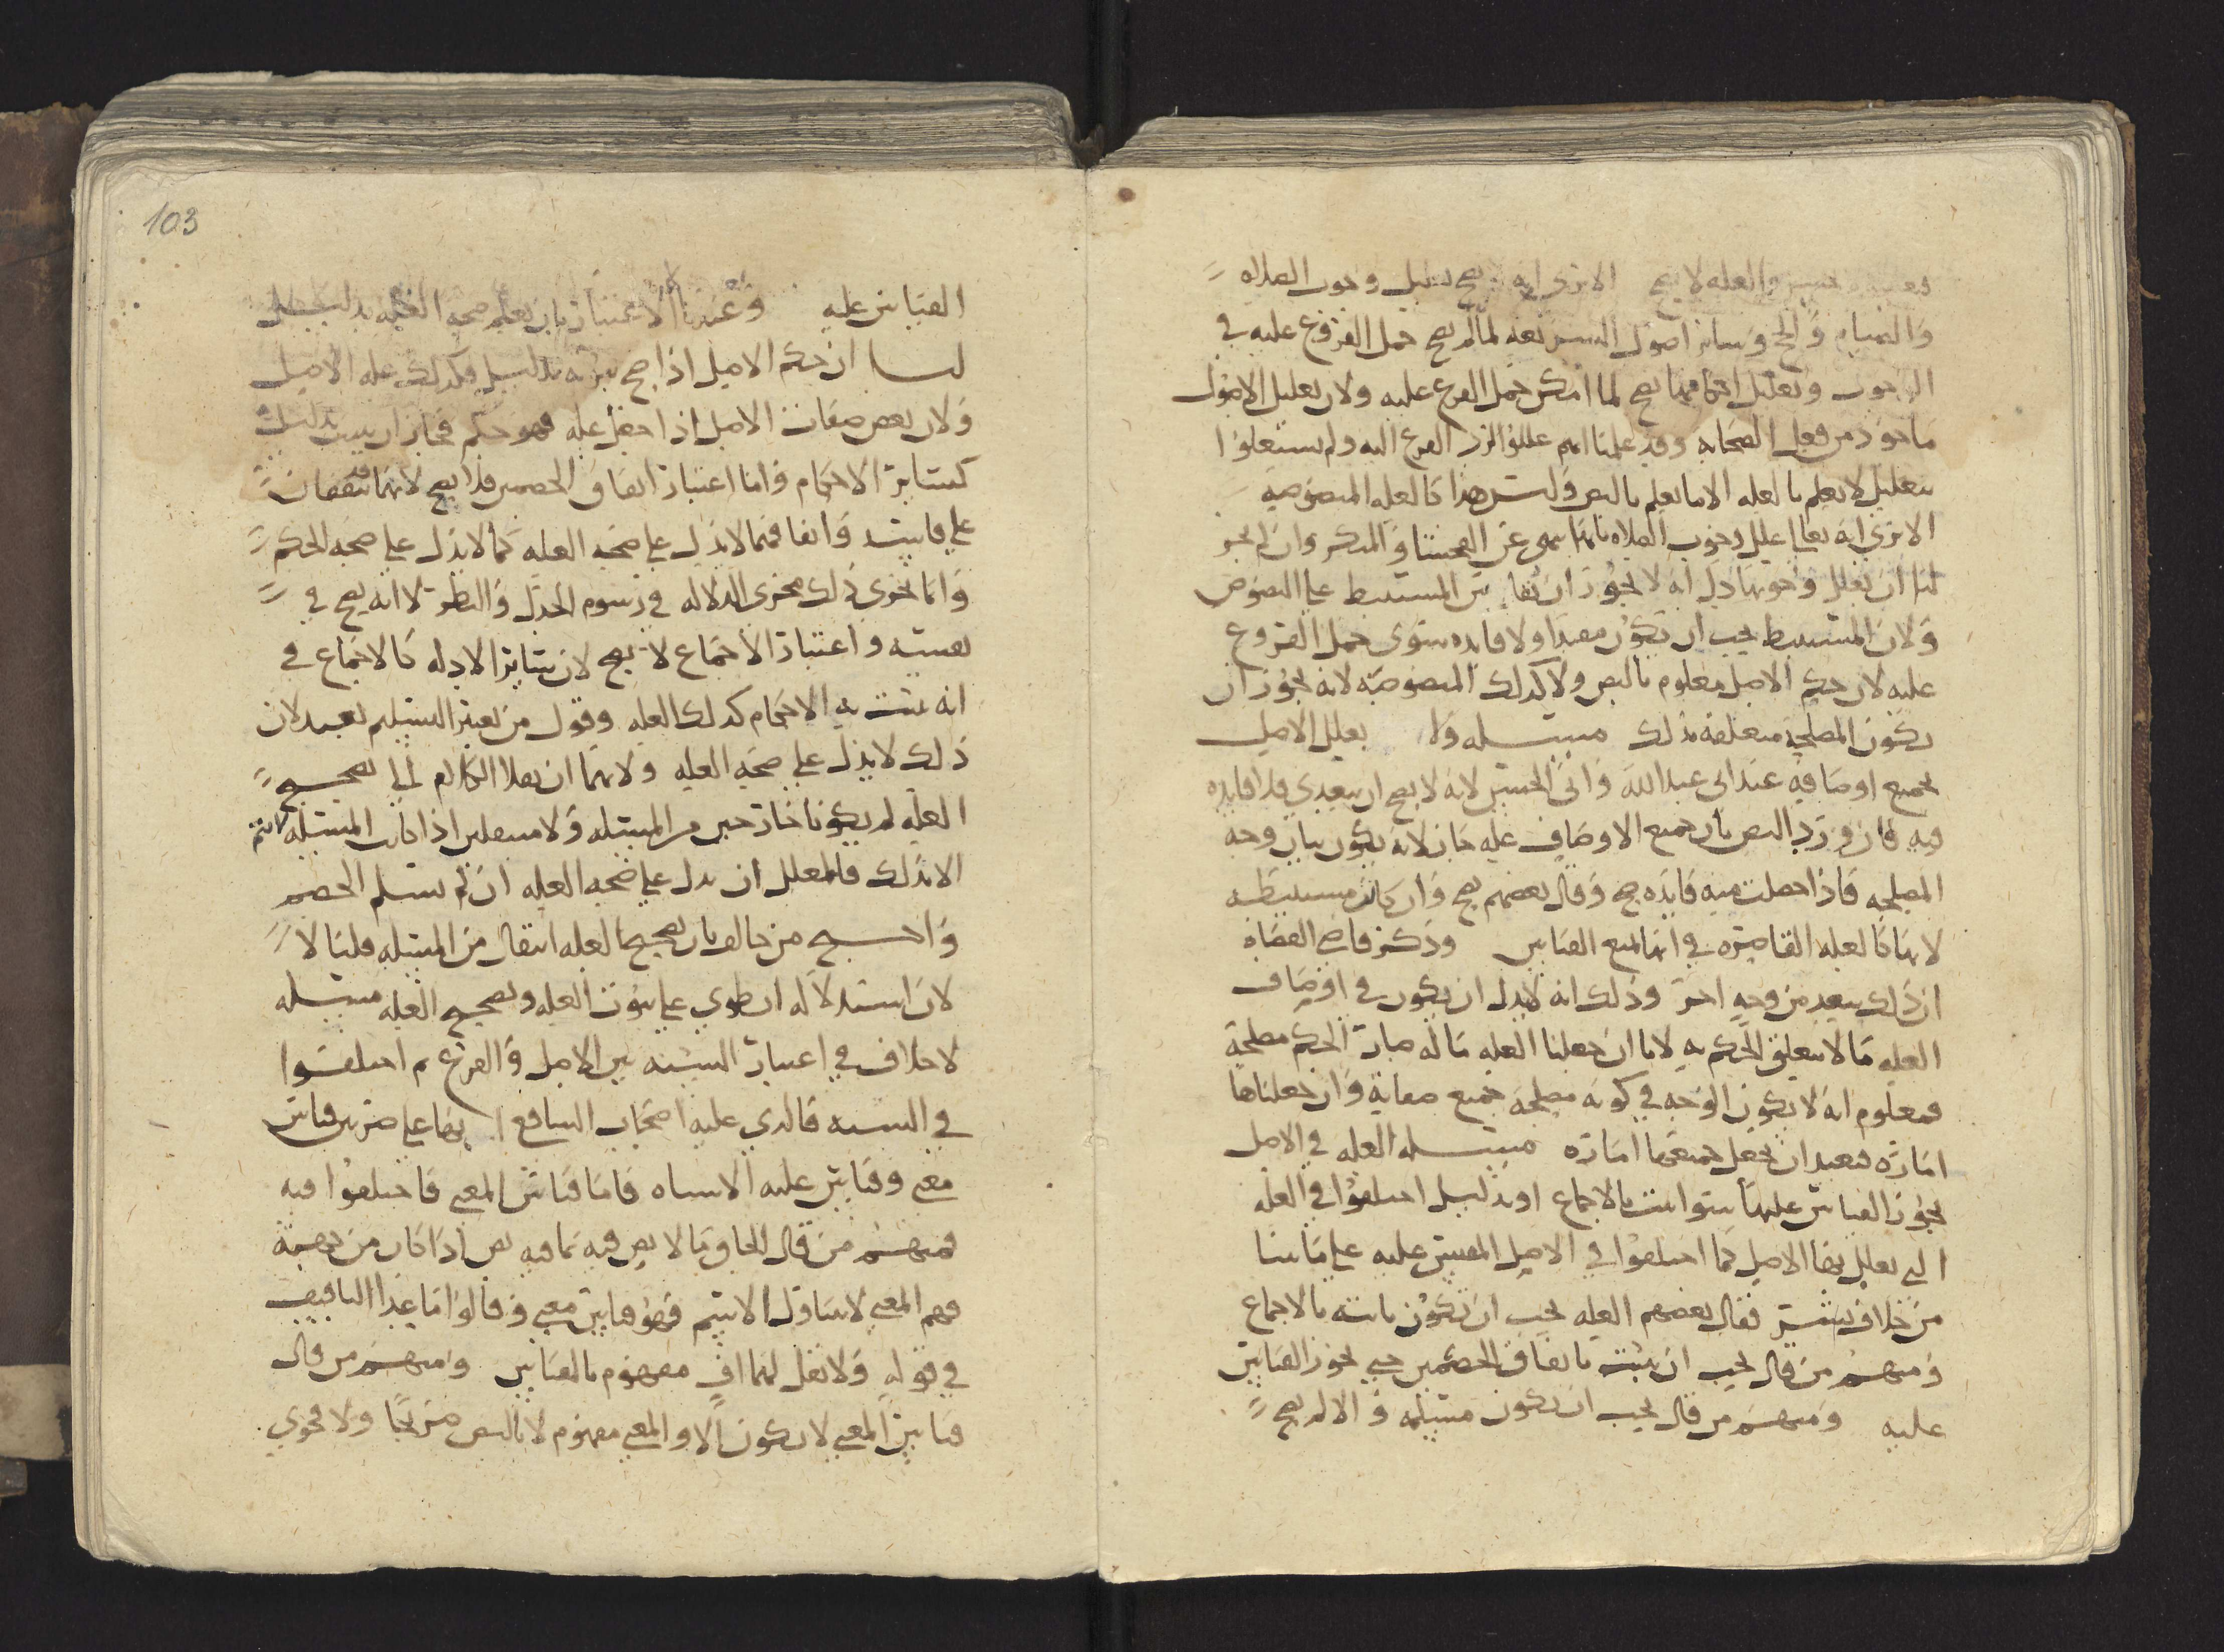 والعله لا يصح الا ترى انه لا يصح تعليل وجوب الصلاه
والصيام والحج وسائر اصول لما لم يصح حمل الفروع عليه في
الوجوب وتعليل احكامها يصح لما امكن حمل الفرع عليه ولان تعليل الاصول
ماخوذ من فعل الصحابه وقد علمنا انهم عللوا لرد الفرع اليه ولم يستعلوا
بتعليل لا يعلم بالعله الا ما يعلم بالنص وليس هذا كالعله المنصوصه
الا ترى انه تعالى علل وجوب الصلاه بانها تنهى عن الفحشا والمنكر وان لم يجز
لنا ان نعلل وجوبها دل انه لا يجوز ان يقاس المستنبط على المنصوص
ولان المستنبط يجب ان يكون مفيدا ولا فايده سوى حمل الفروع
عليه لان حكم الاصل معلوم بالنص ولا كذلك المنصوصه لانه يجوز ان
يكون المصلحه متعلقه بذلك مسئله ولا يعلل الاصل
بجميع اوصافه عند ابى عبد الله وابى الحسين لانه لا يصح ان يتعدى فلا فايده
فيه فان ورد النص بان جميع الاوصاف عله جاز لانه يكون بيان وجه
المصلحه فاذا حصلت فيه فايده صح وقال بعضهم يصح وان كانت مستنبطه
لانها كالعله القاصره في انها تمنع القياس وذكر قاضى القضاه
ان ذلك يبعد من وجه اخر وذلك انه لا بد ان يكون في اوصاف
العله ما لا يتعلق الحكم به لانا ان جعلنا العله ما له صار الحكم مصلحة
فمعلوم انه لا يكون الوجه في كونه مصلحه جميع صفاته وان جعلناها
اماره فبعيد ان نجعل جميعها اماره مسئله العله في الاصل
يجوز القياس عليها سوا ثبت بالاجماع او بدليل اختلفوا في العله
التى يعلل بها الاصل كما اختلفوا في الاصل المقيس عليه على ما بينا
من خلاف بشر فقال بعضهم العله يجب ان تكون ثابته بالاجماع
ومنهم من قال يجب ان يثبت باتفاق الخصمين حتى يجوز القياس
عليه ومنهم من قال يجب ان يكون مسلمه والا لم يصح
القياس عليه وعندنا الاعتبار بان نعلم صحه العله بدليل
لنا ان حكم الاصل اذا صح ثبوته بدليل فكذلك عله الاصل
ولان بعض صفات الاصل اذا جعل عله فهو حكم فجاز ان يثبت بدليل
كسائر الاحكام فاما اعتبار اتفاق الخصمين فلا يصح لانهما متفقان
على واتفاقهما لا يدل على صحه العله كما لا يدل على صحه الحكم
وانما يجرى ذلك مجرى الدلاله في رسوم الجدل والنظر لا انه يصح في
نفسه واعتبار الاجماع لا يصح لان سائر الادله كالاجماع في
انه يثبت به الاحكام كذلك العله وقول من يعتبر التسليم بعيد لان
ذلك لا يدل على صحه العله ولانهما ان نقلا الكلام الى تصحيح
العله لم يكونا خارجين من المسئله ولا منتقلين اذا كانت المسئله لا تتم
الا بذلك فللمعلل ان يدل على صحه العله ان لم يسلم الخصم
واحتج من خالف بان تصحيح العله انتقال من المسئله قلنا لا
لان استدلاله انطوى على ثبوت العله وتصحيح العله مسئله
لا خلاف في اعتبار الشبه بين الاصل والفرع ثم اختلفوا
في الشبه فالذي عليه اصحاب الشافعي انها على ضربين قياس
معنى وقياس عليه الاشباه فاما قياس المعنى فاختلفوا فيه
فمنهم من قال الحاق ما لا نص فيه بما فيه نص اذا كان من جهة
فهم المعنى لا يتناول الاسم فهو قياس معنى وقالوا ما عدا التافيف
في قوله ولا تقل لهما اف مفهوم بالقياس ومنهم من قال
قياس المعنى لا يكون الا والمعنى مفهوم لا بالنص صريحا ولا فحوى
103